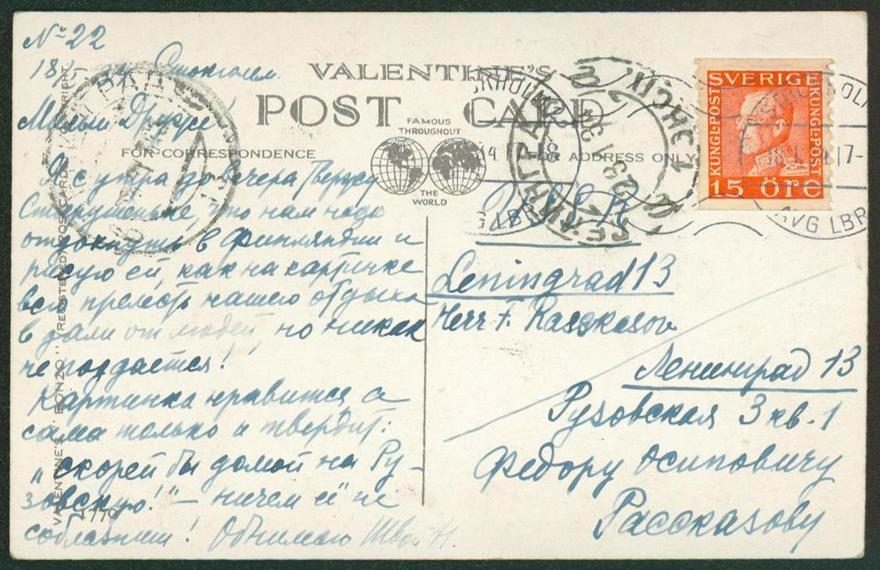 № 22
18/5 Стокгольм
VALENTINE'S
POST CARD
FAMOUS
THROUGHOUT
THE
WORLD
FOR CORRESPONDENCE
ADDRESS ONLY
Милый Дружок!
Я с утра до вечера твержу
старушенке, что нам надо
отдохнуть в Финляндии и
рисую ей, как на картинке
всю прелесть нашего отдыха
в дали от людей, но никак
не поддается!
Картинка нравится а
сама только и твердит:
"скорей бы домой на Ру-
зовскую!" – ничем её не
соблазниш! Обнимаю Твой Н.
U.S.S.R.
Leningrad 13
Herr F. Rasskasov
Ленинград 13
Рузовская 3 кв. 1
Федору Осиповичу
Рассказову
SVERIGE
KUNGL-POST
KUNGL-POST
15 ÖRE
ЛЕНИНГРАД
VALENTINE'S "BONZO" REGISTERED POSTCARD